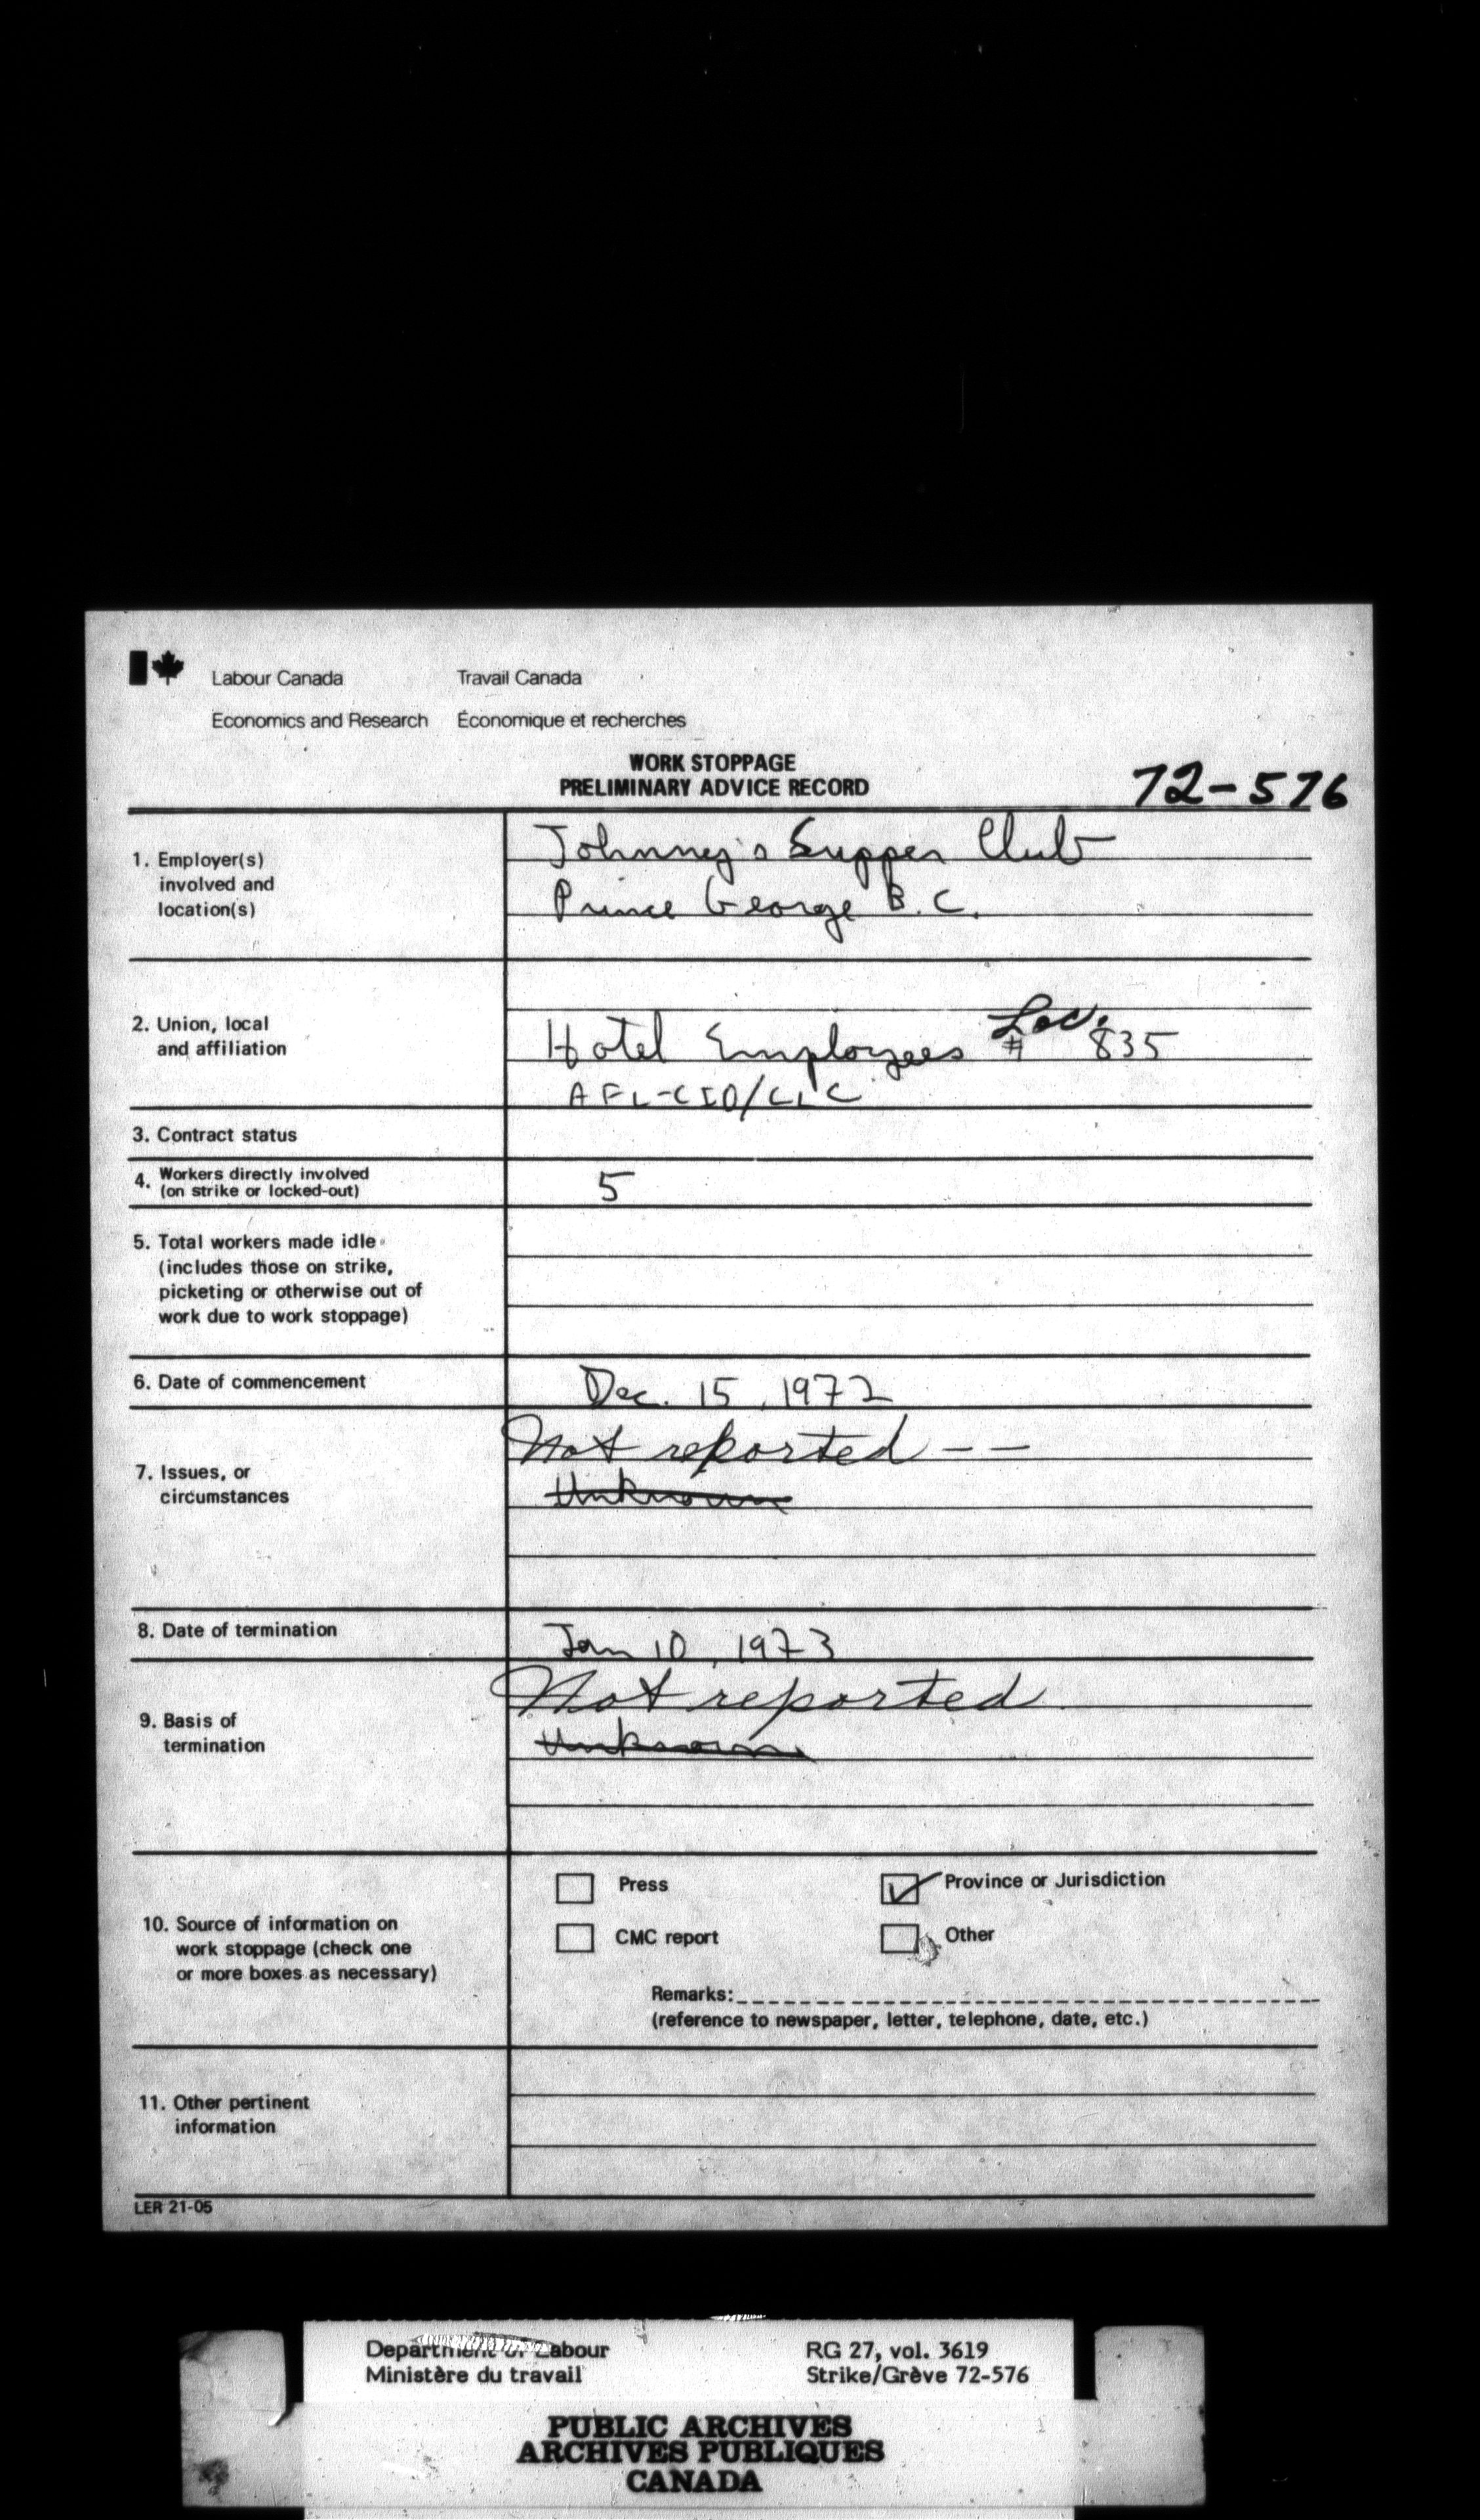 Labour Canada Travail Canada
Economics and Research Économique et recherches
WORK STOPPAGE
PRELIMINARY ADVICE RECORD
72-576
1. Employer(s)
involved and
location(s)
Johnney's Supper Club
Prince George B.C.
2. Union, local
and affiliation
Loc.
Hotel Employees # 835
AFL-CIO/CLC
3. Contract status
4. Workers directly involved
(on strike or locked-out)
5
5. Total workers made idle
(includes those on strike,
picketing or otherwise out of
work due to work stoppage)
6. Date of commencement
Dec. 15, 1972
7. Issues, or
circumstances
Not reported - -
Unknown
8. Date of termination
Jan 10, 1973
9. Basis of
termination
Not reported
Unknown
10. Source of information on
work stoppage (check one
or more boxes as necessary)
Press Province or Jurisdiction
CMC report Other
Remarks:
(reference to newspaper, letter, telephone, date, etc.)
11. Other pertinent
information
LER 21-05
Department of Labour RG 27, vol. 3619
Ministère du travail Strike/Grève 72-576
PUBLIC ARCHIVES
ARCHIVES PUBLIQUES
CANADA